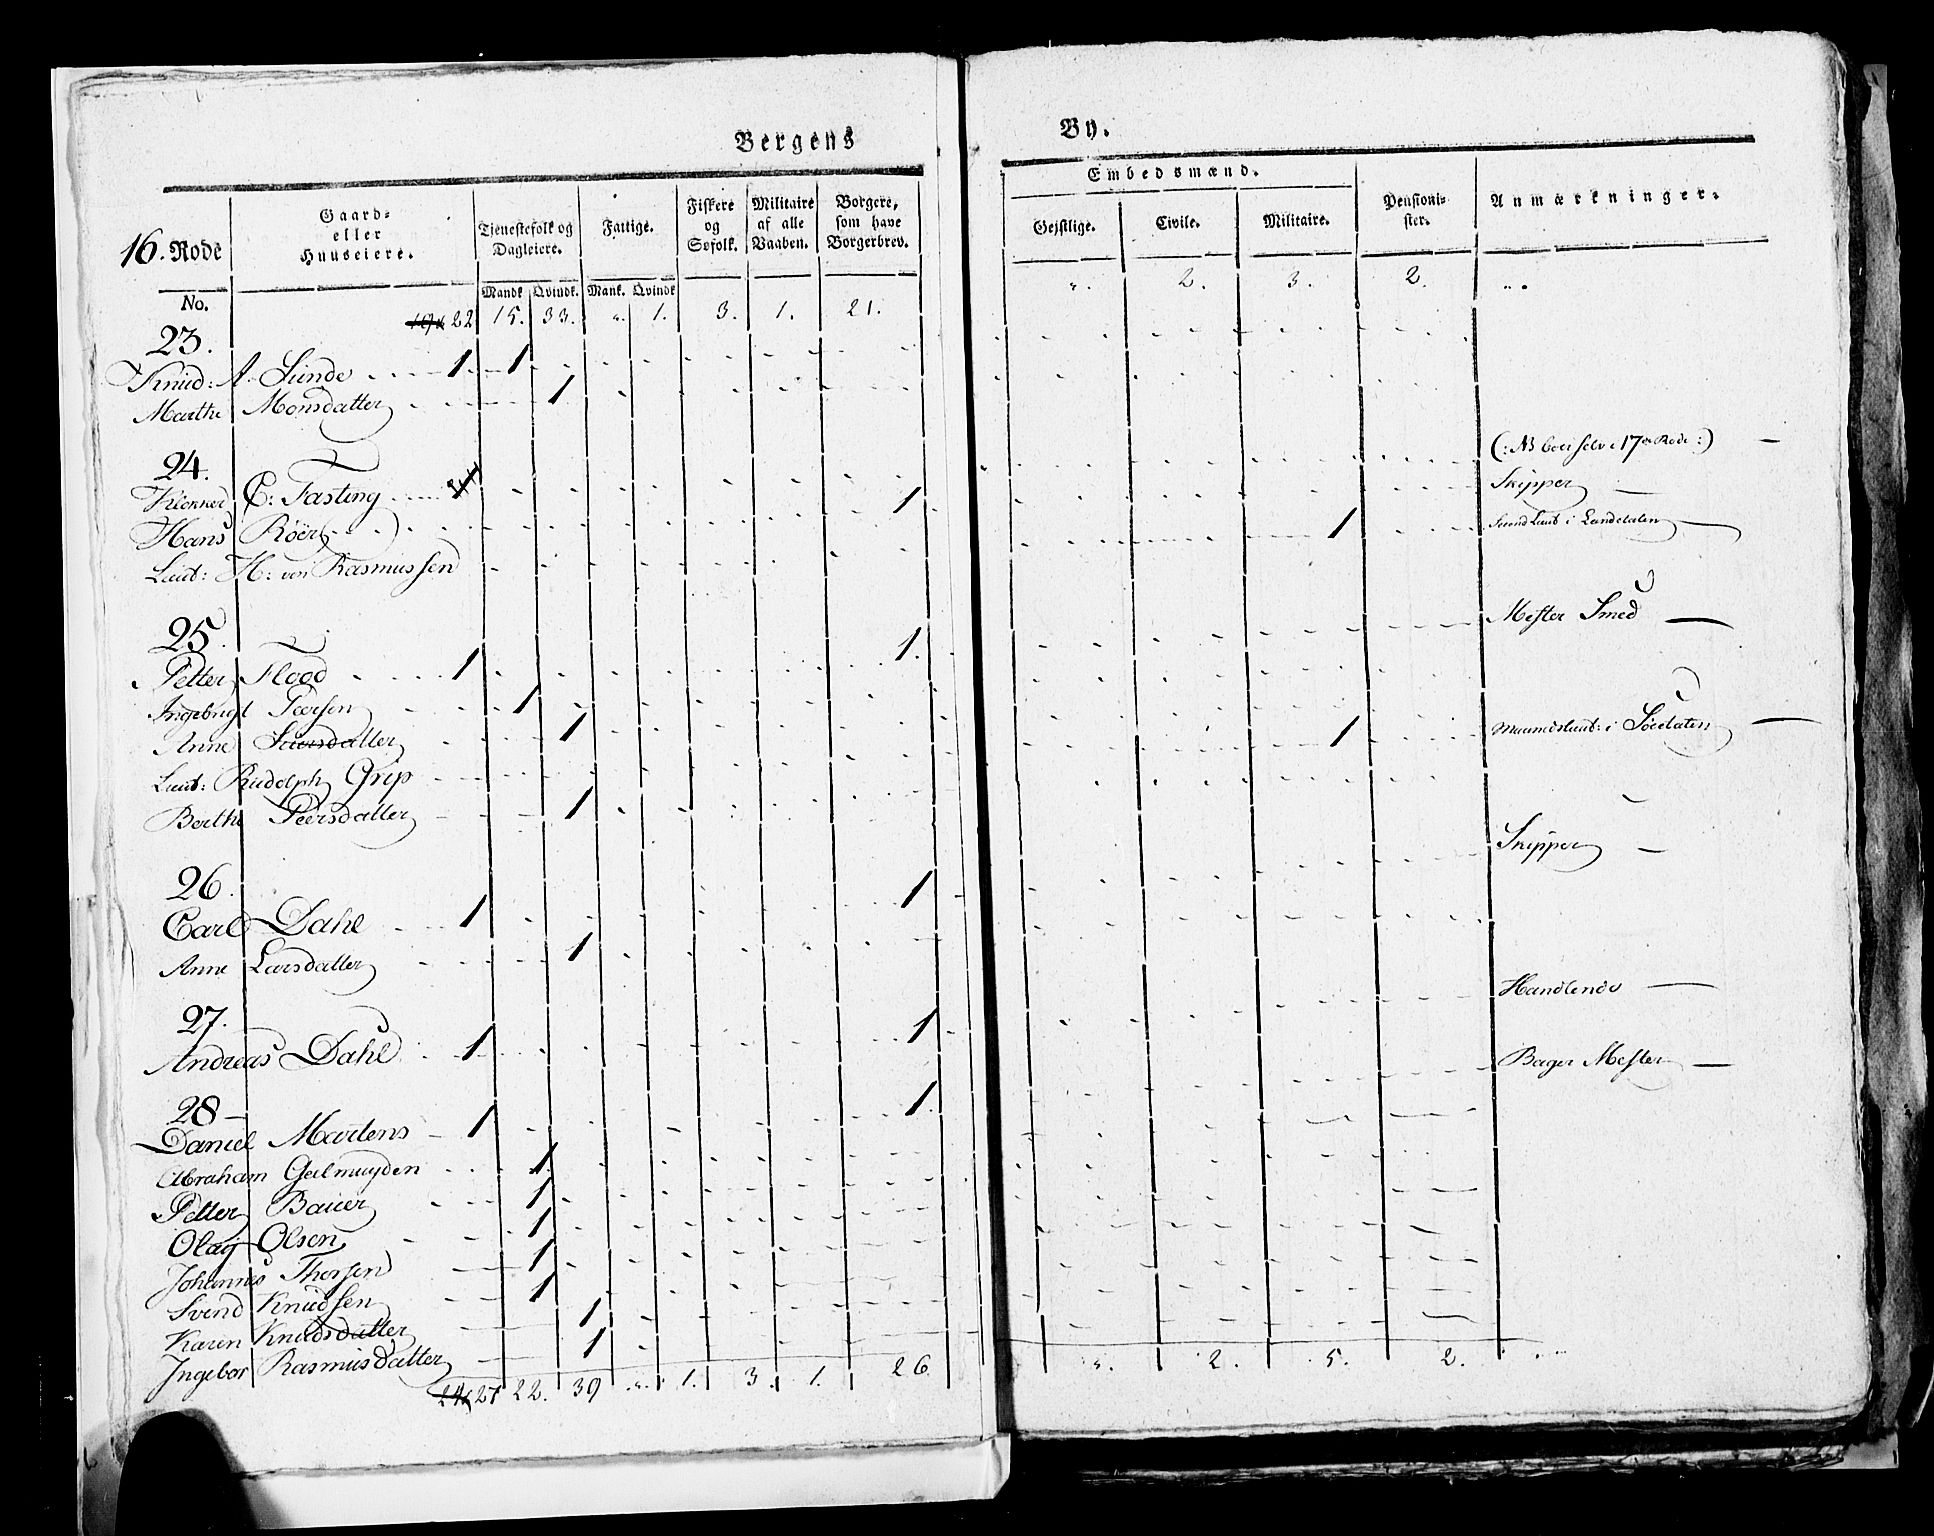 Bergens By.
16. Rode
Gaard- eller Huuseiere.
Tjenestefolk og Dagleiere.
Fattige.
Fiskere og Søfolk.
Militaire af alle Vaaben.
Borgere, som have Borgerbrev.
Embedsmænd.
Gejstlige.
Civile.
Militaire.
Pensionister.
Anmærkninger.
No.
Mandk. Qvindk. Mank. Qvindk.
22 15. 33. „. 1. 3. 1. 21. „. 2. 3. 2. „.
23.
Knud: A. Sunde 1 1
Marthe Monsdatter 1
24.
Klokker C: Fasting (: NB boer selv i 17de Rode :)
Hans Röer 1 Skipper
Lieut: H: von Rasmussen 1 Second Lieut i Landetaten
25.
Petter Flood 1 1. Mester Smed
Ingebrigt Peersen 1
Anne Larsdatter 1
Lieut: Rudolph Grip 1 Maanedslieut: i Söeetaten
Berthe Peersdatter 1
26.
Carl Dahl 1 1 Skipper
Anne Larsdatter 1
27.
Andreas Dahl 1 1 Handlende
28
Daniel Martens 1 1. Bager Mester
Abraham Geelmuyden 1
Petter Bauer 1
Olay Olsen 1
Johannes Thorsen 1
Svend Knudsen 1
Karen Knudsdatter 1
Ingebor Rasmusdatter 1
27 22. 39 „. 1. 3. 1. 26 „. 2. 5. 2.